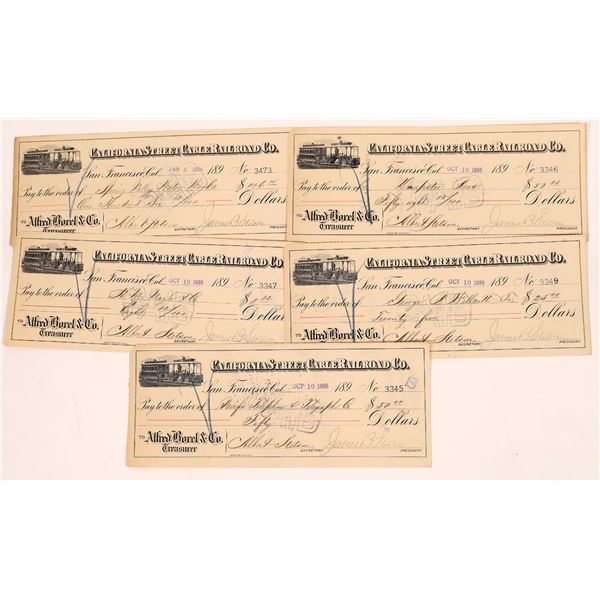 CALIFORNIA STREET CABLE RAILROAD CO.
San Francisco, Cal. 1896 189 No 3473
Pay to the order of Spring Valley Water Works $106
One Hundred Six Dollars
TO Alfred Borel & Co.
Treasurer
Albert Stetson SECRETARY James B. Stetson
CALIFORNIA STREET CABLE RAILROAD CO.
San Francisco, Cal. OCT 10 1895 189 No 3346
Pay to the order of $58
Fifty eight Dollars
TO Alfred Borel & Co.
Treasurer
Albert Stetson SECRETARY James B. Stetson PRESIDENT
CALIFORNIA STREET CABLE RAILROAD CO.
San Francisco, Cal. OCT 10 1895 189 No 3347
Pay to the order of $8
Eight Dollars
TO Alfred Borel & Co.
Treasurer
Albert Stetson SECRETARY James B. Stetson
CALIFORNIA STREET CABLE RAILROAD CO.
San Francisco, Cal. OCT 10 1895 189 No 3349
Pay to the order of George $25
Twenty five Dollars
TO Alfred Borel & Co.
Treasurer
Albert Stetson SECRETARY James B. Stetson PRESIDENT
CALIFORNIA STREET CABLE RAILROAD CO.
San Francisco, Cal. OCT 10 1895 189 No 3345
Pay to the order of Pacific Telephone & Telegraph Co $50
Fifty Dollars
TO Alfred Borel & Co.
Treasurer
Albert Stetson SECRETARY James B. Stetson PRESIDENT